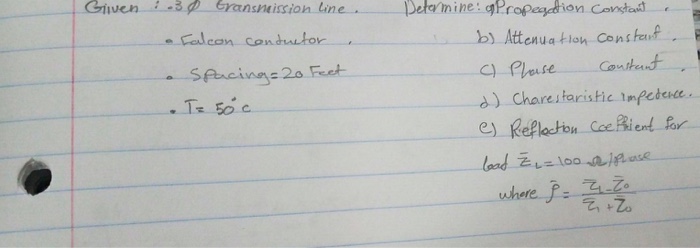 Given : - 3Ø transmission line.
• Falcon conductor.
• Spacing = 20 Feet
• T = 50°c
Determine: a) Propagation constant.
b) Attenuation constant.
c) Phase constant.
d) Charestaristic impedence.
e) Reflection Coeffient for
load Z̄L = 100 Ω/phase
where ρ̄ = (Z̄L - Z̄o) / (Z̄L + Z̄o)